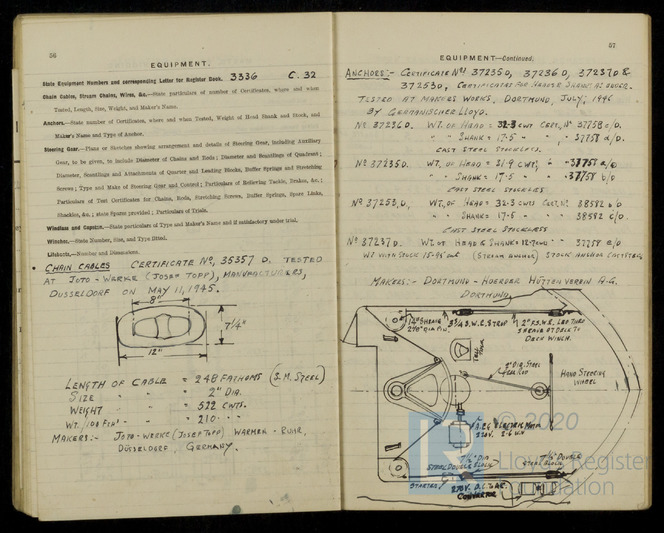 56
EQUIPMENT.
State Equipment Numbers and corresponding Letter for Register Book. 3336 C. 32
Chain Cables, Stream Chains, Wires, &c.—State particulars of number of Certificates, where and when
Tested, Length, Size, Weight, and Maker's Name.
Anchors.—State number of Certificate, where and when Tested, Weight of Head Shank and Stock, and
Maker's Name and Type of Anchor.
Steering Gear.—Plans or Sketches showing arrangement and details of Steering Gear, including Auxiliary
Gear, to be given, to include Diameter of Chains and Rods; Diameter and Scantlings of Quadrant;
Diameter, Scantlings and Attachments of Quarter and Leading Blocks, Buffer Springs and Stretching
Screws; Type and Make of Steering Gear and Control; Particulars of Relieving Tackle, Brakes, &c.;
Particulars of Test Certificates for Chains, Rods, Stretching Screws, Buffer Springs, Spare Links,
Shackles, &c.; state Spares provided; Particulars of Trials.
Windlass and Capstan.—State particulars of Type and Maker's Name and if satisfactory under trial.
Winches.—State Number, Size, and Type fitted.
Lifeboats.—Number and Dimensions.
CHAIN CABLES CERTIFICATE No, 35357 D. TESTED
AT JOTO-WERKE (JOSEF TOPP), MANUFACTURERS,
DUSSELDORF ON MAY 11, 1945.
8"
7 1/4"
12"
LENGTH OF CABLE = 248 FATHOMS (S.M. STEEL)
SIZE " " = 2" DIA.
WEIGHT " = 522 CWTS.
WT./100 FMS = 210 " "
MAKERS:- JOTO-WERKE (JOSEF TOPP) WARMEN - RUHR,
DÜSSELDORF, GERMANY.
57
EQUIPMENT—Continued.
ANCHORS:- CERTIFICATE Nos 37235 D, 37236 D, 37237 D &
37253 D, CERTIFICATES FOR HEAD & SHANK AS UNDER.
TESTED AT MAKERS WORKS, DORTMUND, JULY,
BY GERMANISCHER LLOYD.
No 37236 D. WT. OF HEAD = 32.3 CWT CERT. No 37758 c/D.
" " SHANK = 17.5 " " 37758 d/D.
CAST STEEL STOCKLESS.
No 37235 D. WT. OF HEAD = 31.9 CWT, " 37758 a/D
" " SHANK = 17.5 " " 37758 b/D
CAST STEEL STOCKLESS
No 37253 D, WT. OF HEAD = 32.3 CWT CERT. No 38582 b/D
" " SHANK = 17.5 " " 38582 c/D.
CAST STEEL STOCKLESS
No 37237 D. WT OF HEAD & SHANK = CWT " 37758 e/D
WT WITH STOCK CWT (STREAM ANCHOR) STOCK ANCHOR
MAKERS:- DORTMUND - HOERDER HÜTTENVEREIN A-G.
DORTMUND.
14" SHEAVE
2 1/2" DIA PIN.
S.W.R. STROP
2" F.S.W.R. LED THRO
SHEAVE AT DECK TO
DECK WINCH.
DIA. STEEL
HAND STEERING
WHEEL
ELECTRIC MOTOR
220V.
7 1/2" DIA
STEEL DOUBLE BLOCK
7 1/2" DOUBLE
STEEL BLOCK
STARTER
220V. D.C. to A.C.
CONVERTOR
LR
© 2020
Lloyd's Register
Foundation